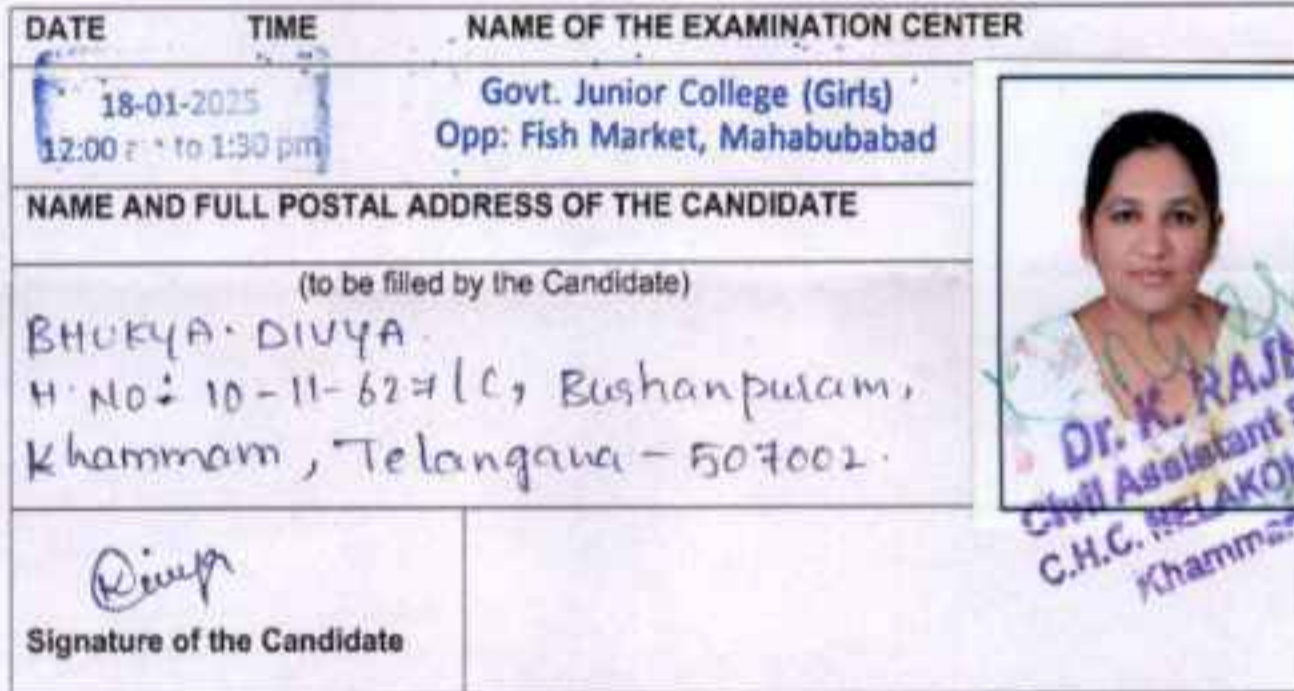 DATE TIME NAME OF THE EXAMINATION CENTER
18-01-2025
12:00 to 1:30 pm
Govt. Junior College (Girls)
Opp: Fish Market, Mahabubabad
NAME AND FULL POSTAL ADDRESS OF THE CANDIDATE
(to be filled by the Candidate)
BHUKYA. DIVYA.
H. NO: 10-11-627/C, Bushanpuram,
Khammam, Telangana - 507002.
Signature of the Candidate
Dr. K.
Civil Assistant
C.H.C.